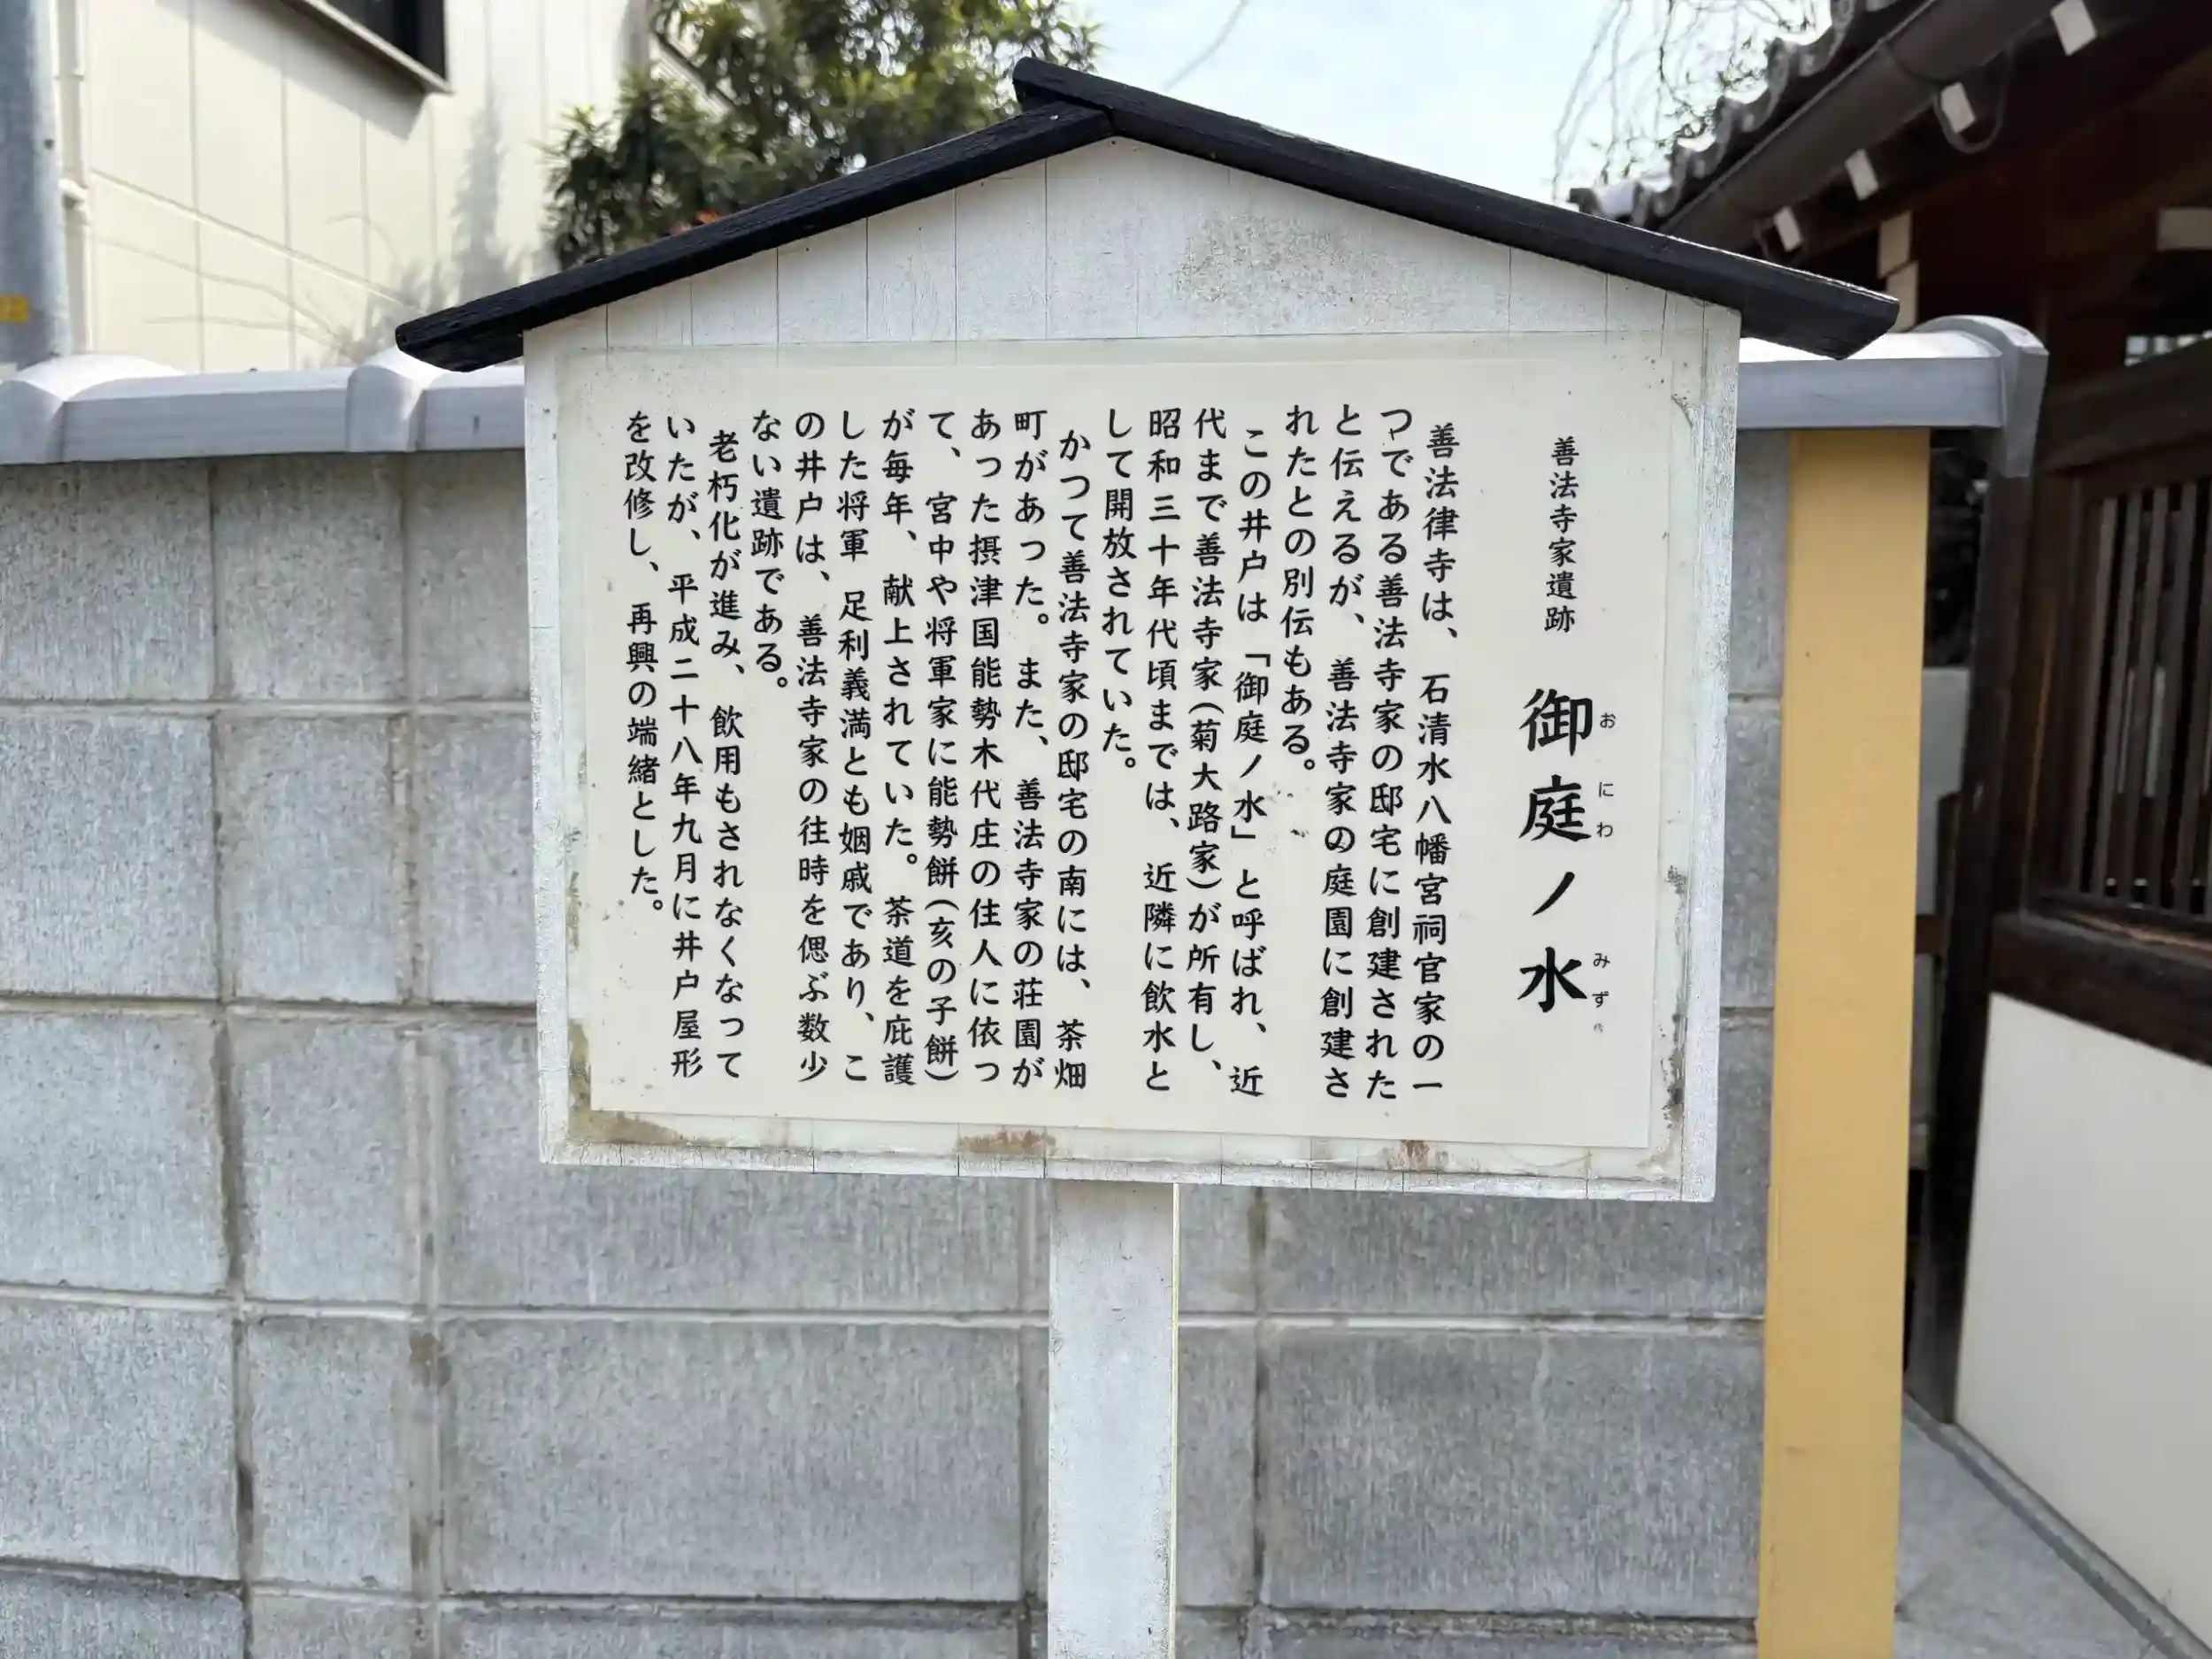 善法寺家遺跡 御庭ノ水
おにわ みず
善法律寺は、石清水八幡宮祠官家の一
つである善法寺家の邸宅に創建された
と伝えるが、善法寺家の庭園に創建さ
れたとの別伝もある。
この井戸は「御庭ノ水」と呼ばれ、近
代まで善法寺家(菊大路家)が所有し、
昭和三十年代頃までは、近隣に飲水と
して開放されていた。
かつて善法寺家の邸宅の南には、茶畑
町があった。また、善法寺家の荘園が
あった摂津国能勢木代庄の住人に依っ
て、宮中や将軍家に能勢餅(亥の子餅)
が毎年、献上されていた。茶道を庇護
した将軍足利義満とも姻戚であり、こ
の井戸は、善法寺家の往時を偲ぶ数少
ない遺跡である。
老朽化が進み、飲用もされなくなって
いたが、平成二十八年九月に井戸屋形
を改修し、再興の端緒とした。